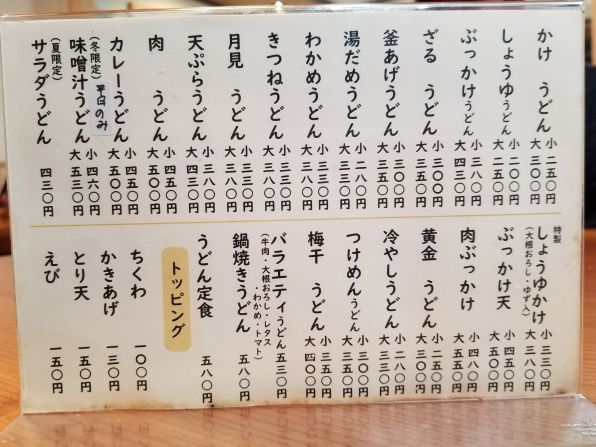 かけ うどん 小 二五〇円 大 三〇〇円
しょうゆうどん 小 二〇〇円 大 二五〇円
ぶっかけうどん 小 三八〇円 大 四三〇円
ざる うどん 小 三〇〇円 大 三五〇円
釜あげうどん 小 三〇〇円 大 三五〇円
湯だめうどん 小 二八〇円 大 三三〇円
わかめうどん 小 三三〇円 大 三八〇円
きつねうどん 小 三三〇円 大 三八〇円
月見 うどん 小 三三〇円 大 三八〇円
天ぷらうどん 小 三八〇円 大 四三〇円
肉 うどん 小 四五〇円 大 五〇〇円
カレーうどん 小 四五〇円 大 五〇〇円
(冬限定)
味噌汁うどん 平日のみ 小 四六〇円 大 五三〇円
(夏限定)
サラダうどん 四三〇円
特製
しょうゆかけ 小 三三〇円 大 三八〇円
(大根おろし・ゆず入)
ぶっかけ天 小 四五〇円 大 五〇〇円
肉ぶっかけ 小 四八〇円 大 五五〇円
黄金 うどん 小 二八〇円 大 三五〇円
冷やしうどん 小 二八〇円 大 三三〇円
つけめんうどん 小 三〇〇円 大 三五〇円
梅干 うどん 小 三五〇円 大 四〇〇円
バラエティうどん 五三〇円
(牛肉・大根おろし・レタス
・わかめ・トマト)
鍋焼きうどん 五八〇円
うどん定食 五八〇円
トッピング
ちくわ 一〇〇円
かきあげ 一三〇円
とり天 一五〇円
えび 一五〇円